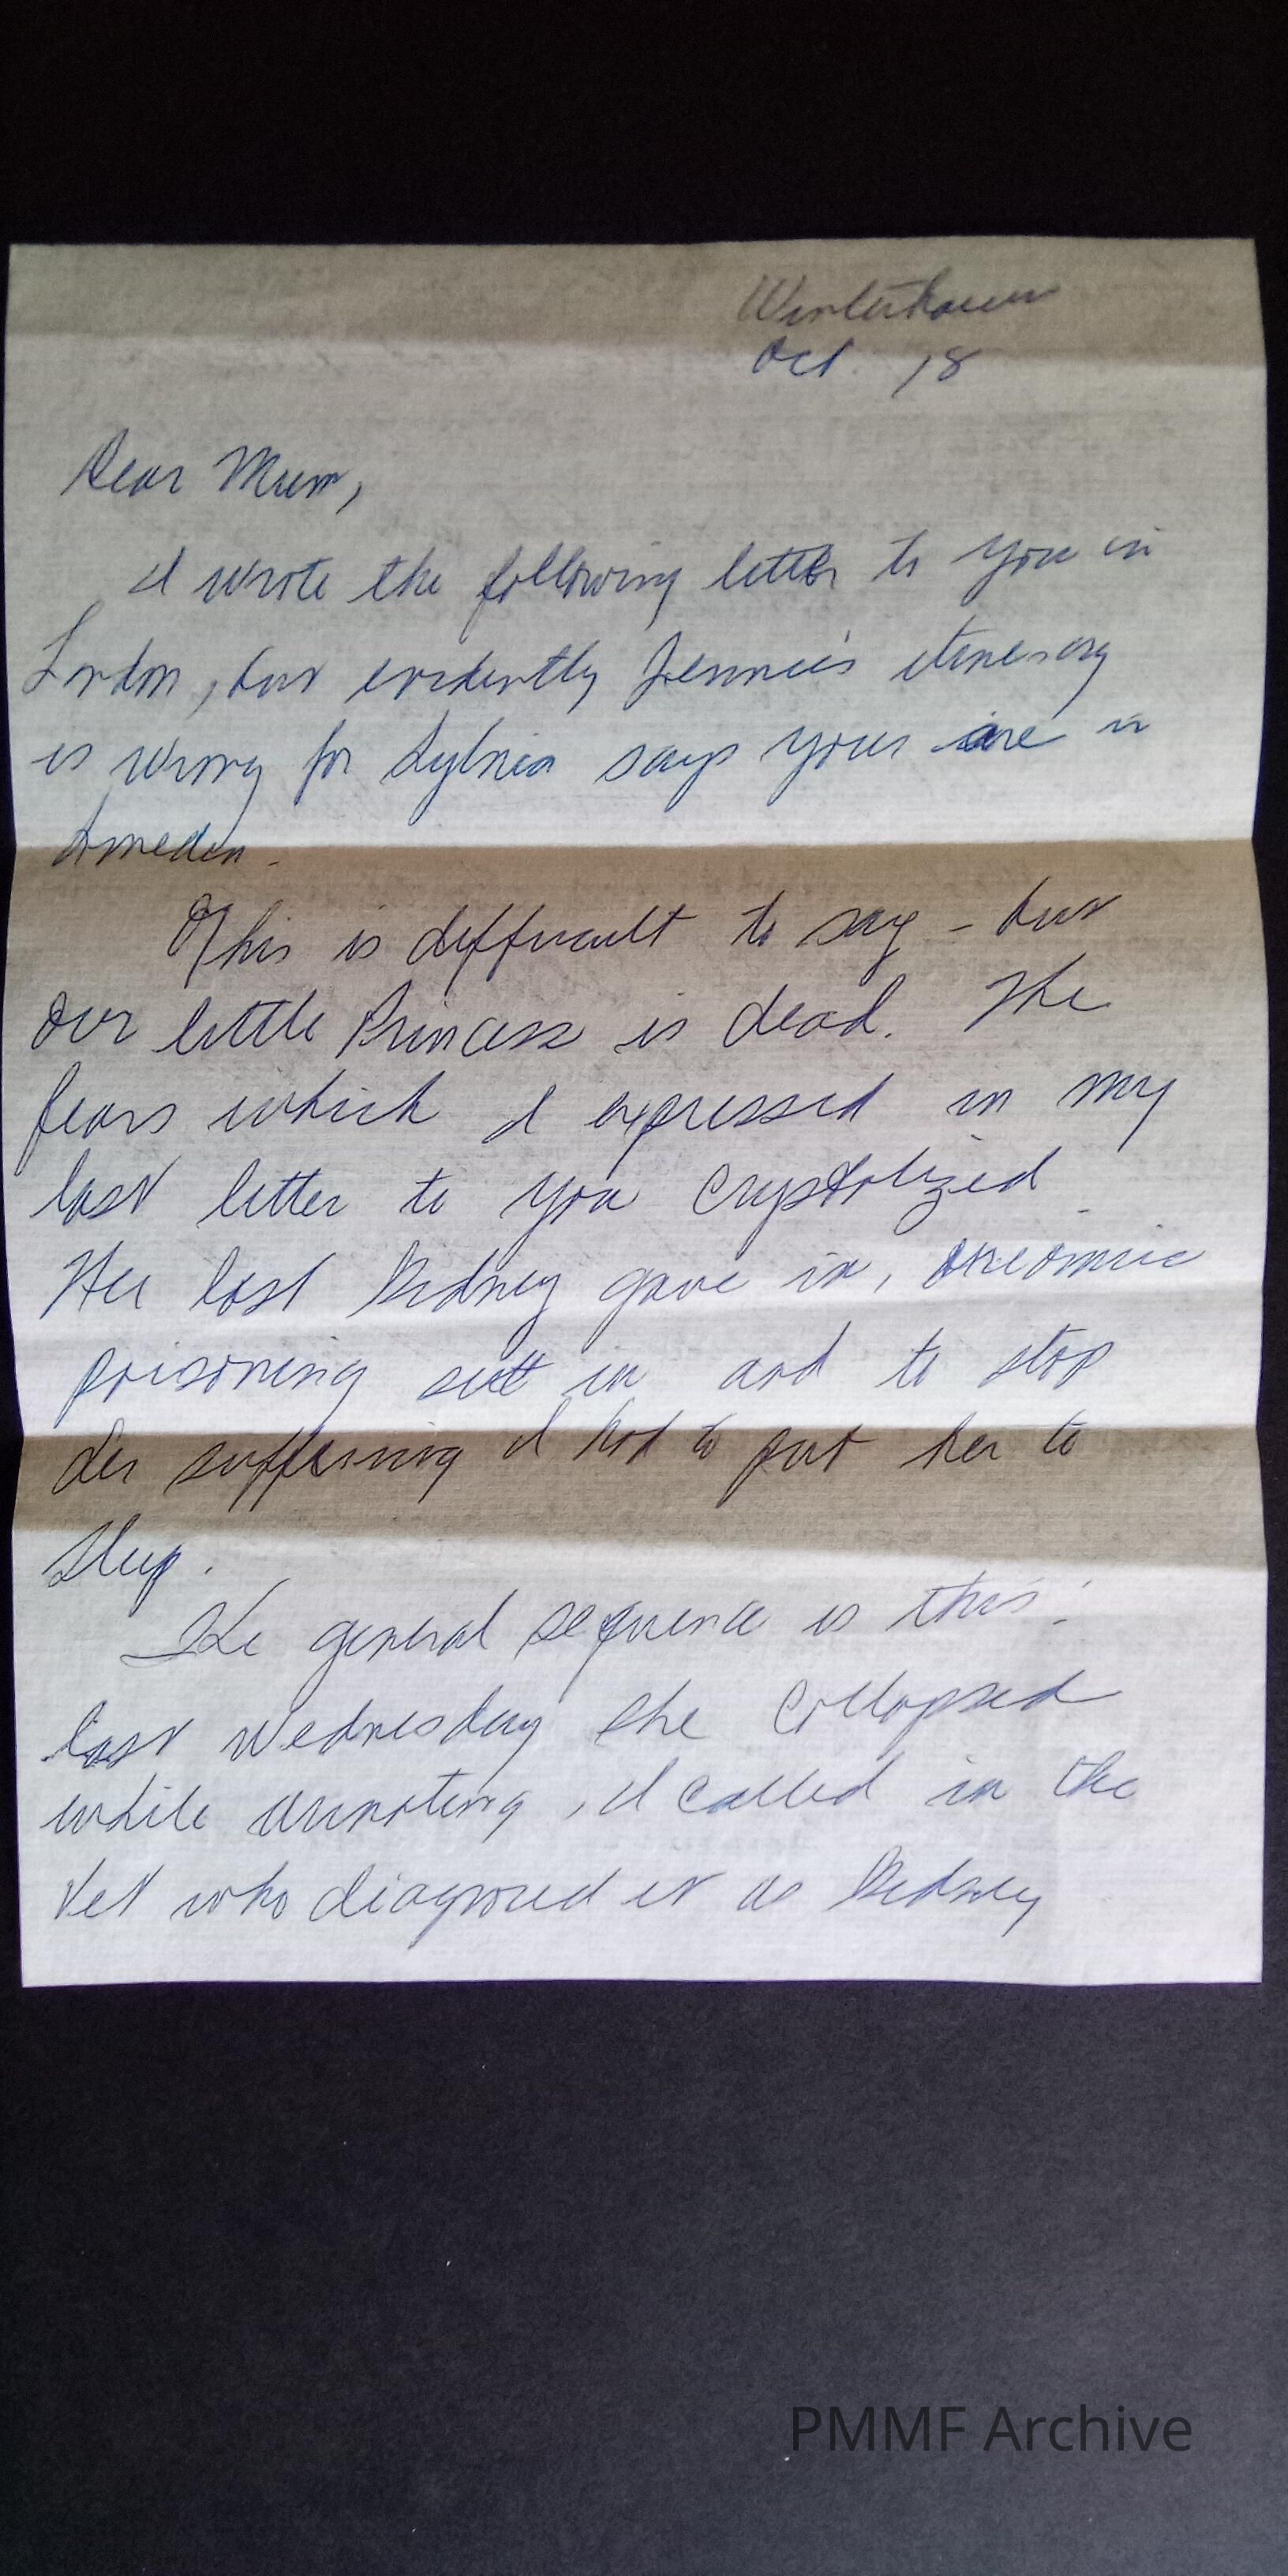 Winterhaven
Oct. 18
Dear Mum,
I wrote the following letter to you in
London, but evidently Jennie's itinerary
is wrong for Sylvia says you are in
Sweden.
This is difficult to say - but
our little Princess is dead. The
fears which I expressed in my
last letter to you crystolized.
Her last kidney gave in, ureamic
poisoning set in and to stop
her suffering I had to put her to
sleep.
The general sequence is this:
last Wednesday she collapsed
while urinating, I called in the
vet who diagnosed it as kidney
PMMF Archive